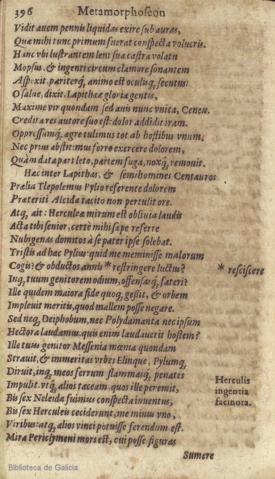 396 Metamorphoseon
Vidit auem pennis liquidas exire sub auras,
Quæ mihi tunc primùm fuerat conspecta volucris.
Hanc vbi lustrantem leni sua castra volatu
Mopsus, & ingenti circum clamore sonantem
Aspexit, pariterq; animo est oculisq; secutus:
O salue, dixit, Lapithææ gloria gentis,
Maxime vir quondam sed auis nunc vnica, Ceneu.
Credita res autore suo est: dolor addidit iram.
Oppressumq; ægre tulimus tot ab hostibus vnum.
Nec prius abstitimus ferro exercere dolorem,
Quàm data pars leto, partem fuga, noxq; remouit.
Hac inter Lapithas, & semihomines Centauros
Prælia Tlepolemus Pylio referente dolorem
Præteriti Alcidæ tacito non pertulit ore.
Atq; ait: Herculeæ mirum est obliuia laudis
Acta tibi senior, certè mihi sæpe referre
Nubigenas domitos à se pater ipse solebat.
Tristis ad hæc Pylius: quid me meminisse malorum
Cogis? & obductos annis * restringere luctus? * resciscere
Inq; tuum genitorem odium, offensasq; fateri?
Ille quidem maiora fide quoq; gessit, & orbem
Impleuit meritis, quod mallem posse negare.
Sed neq; Deiphobum, nec Polydamanta nec ipsum
Hectora laudamus. quis enim laudauerit hostem?
Ille tuus genitor Messenia mœnia quondam
Strauit, & immeritas vrbes Elinque, Pylumq;
Diruit, inq; meos ferrum flammasq; penates
Impulit. vtq; alios taceam quos ille peremit,
Herculis
ingentia
facinora.
Bis sex Neleidæ fuimus conspecta iuuentus,
Bis sex Herculeis ceciderunt, me minus vno,
Viribus: atq; alios vinci potuisse ferendum est.
Mira Periclymeni mors est, cui posse figuras
Sumere
Biblioteca de Galicia